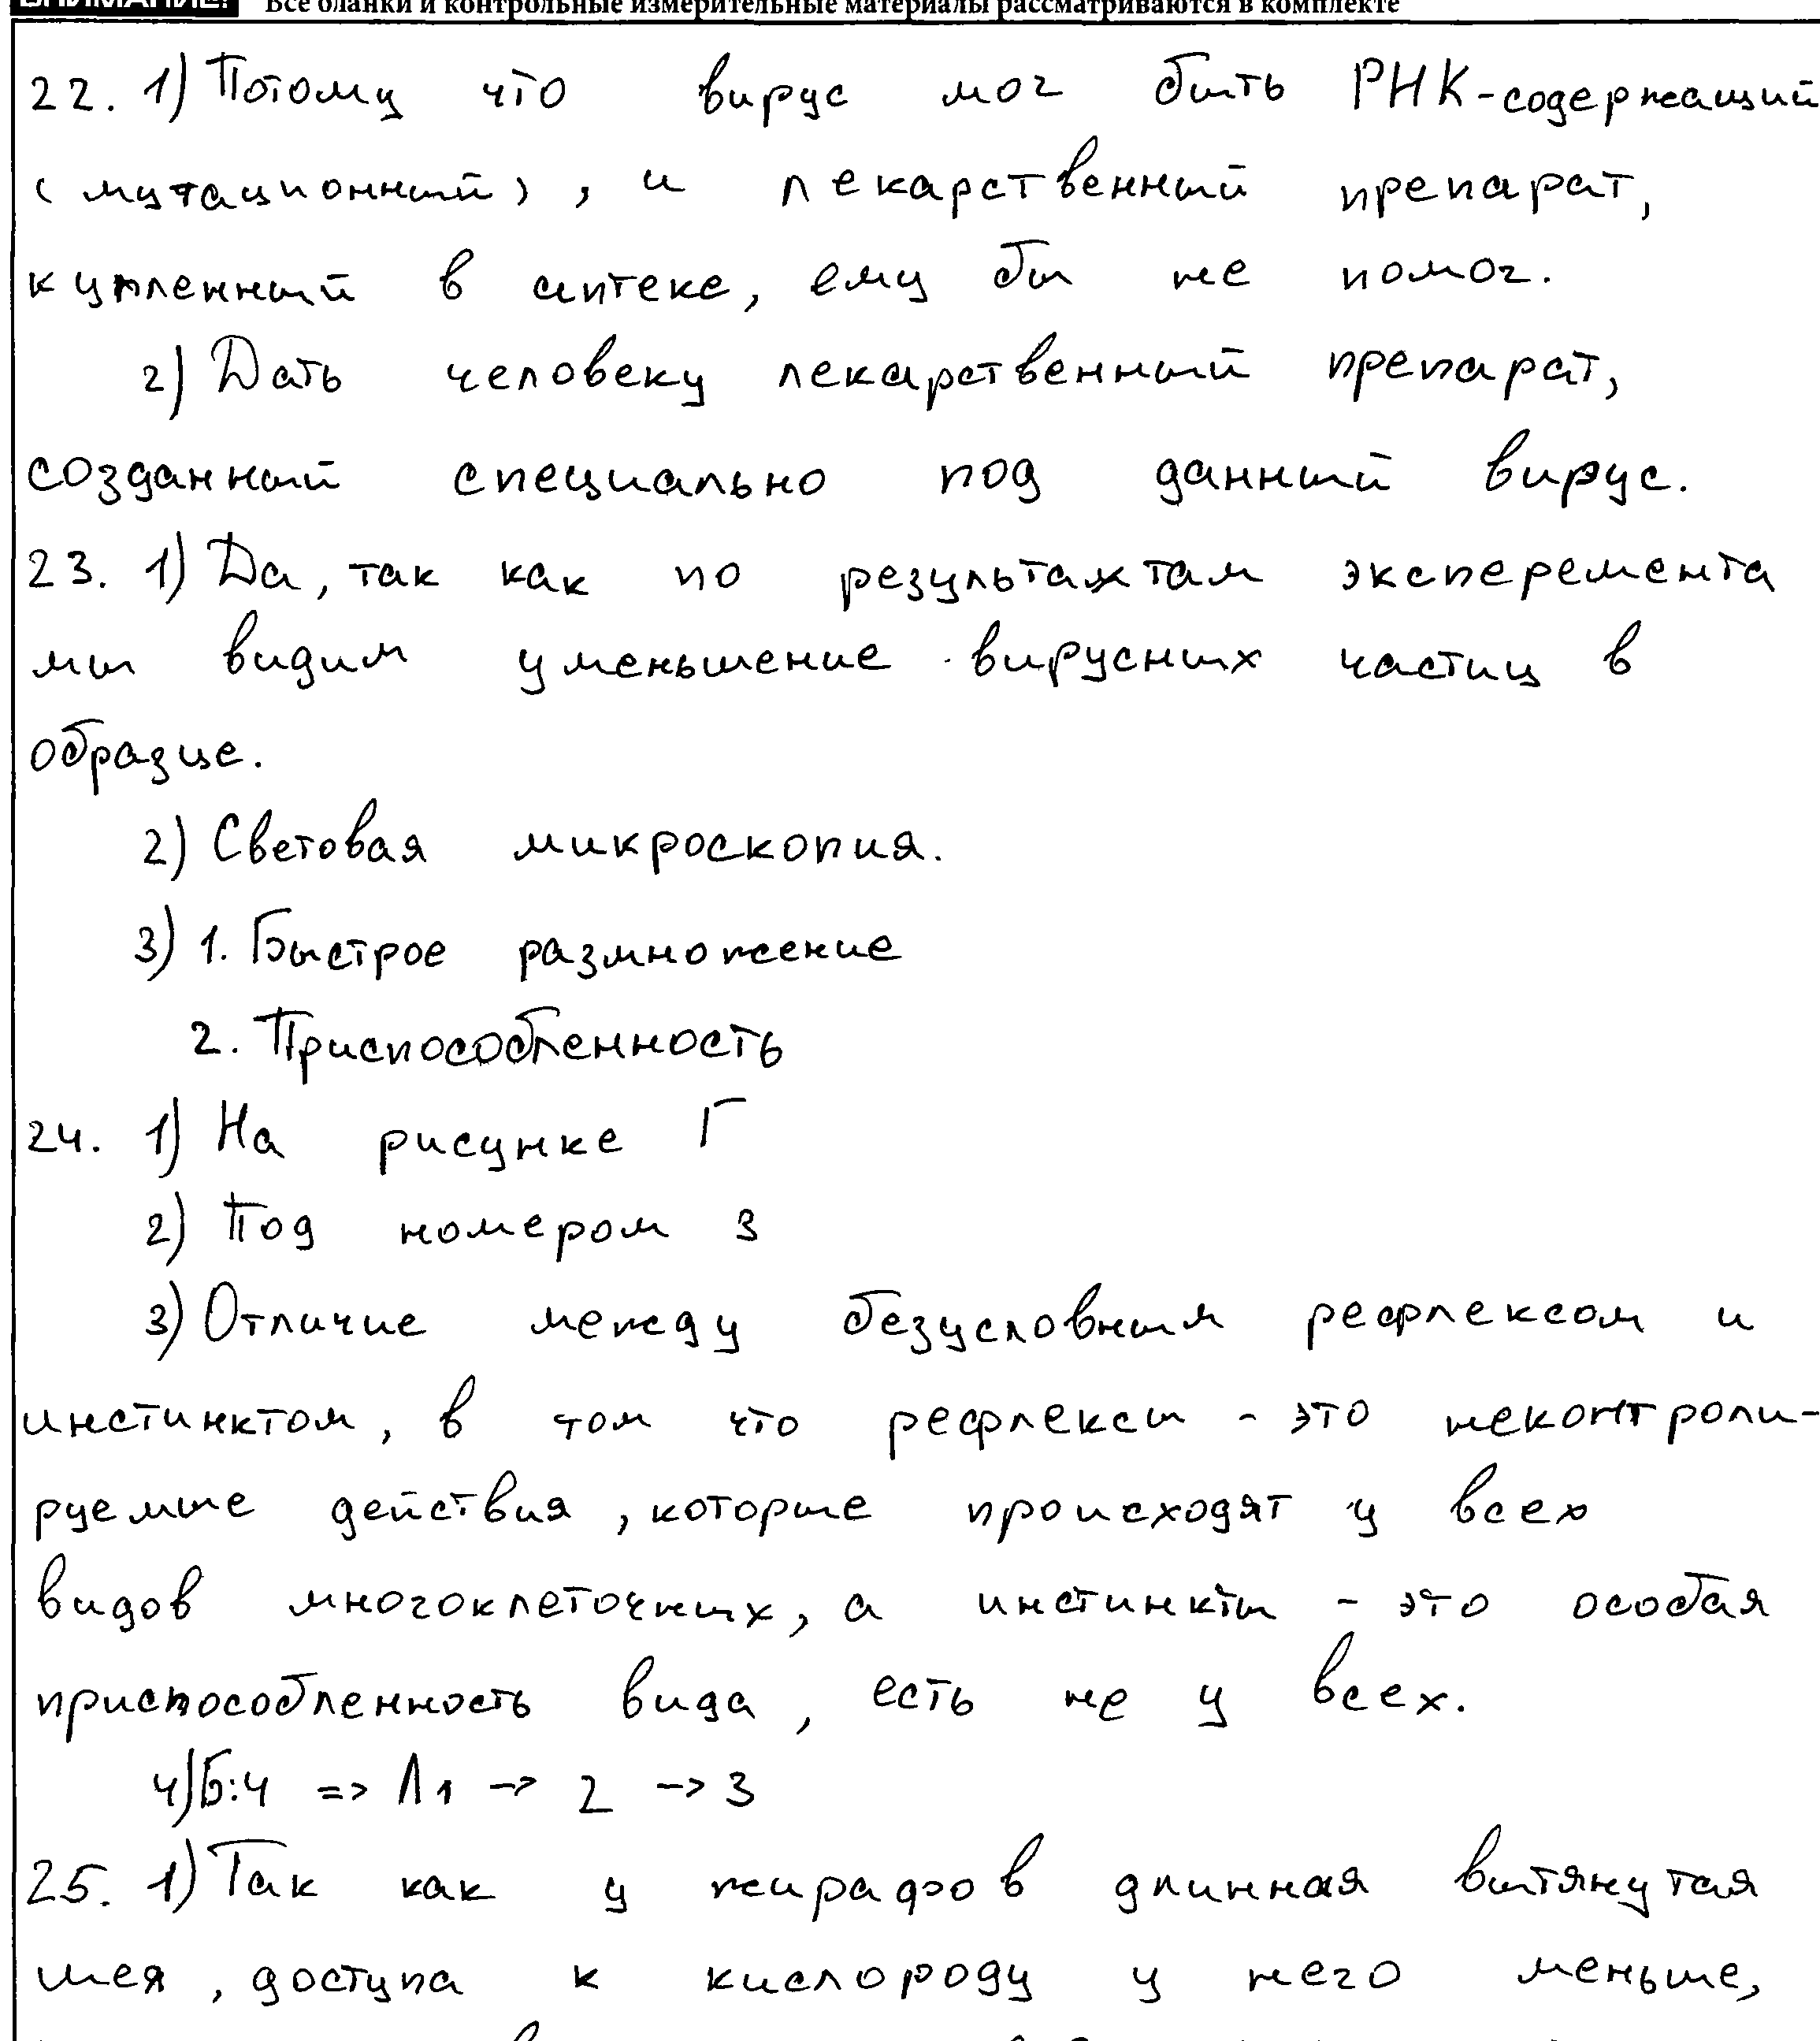 ВНИМАНИЕ! Все бланки и контрольные измерительные материалы рассматриваются в комплекте
22. 1) Потому что вирус мог быть РНК-содержащий
(мутационный), и лекарственный препарат,
купленный в аптеке, ему бы не помог.
2) Дать человеку лекарственный препарат,
созданный специально под данный вирус.
23. 1) Да, так как по результатам эксперемента
мы видим уменьшение вирусных частиц в
образце.
2) Световая микроскопия.
3) 1. Быстрое размножение
2. Приспособленность
24. 1) На рисунке Г
2) Под номером 3
3) Отличие между безусловным рефлексом и
инстинктом, в том что рефлексы - это неконтроли-
руемые действия, которые происходят у всех
видов многоклеточных, а инстинкты - это особая
приспособленность вида, есть не у всех.
4) Б:4 => Л1 -> 2 -> 3
25. 1) Так как у жирафов длинная вытянутая
шея, доступа к кислороду у него меньше,